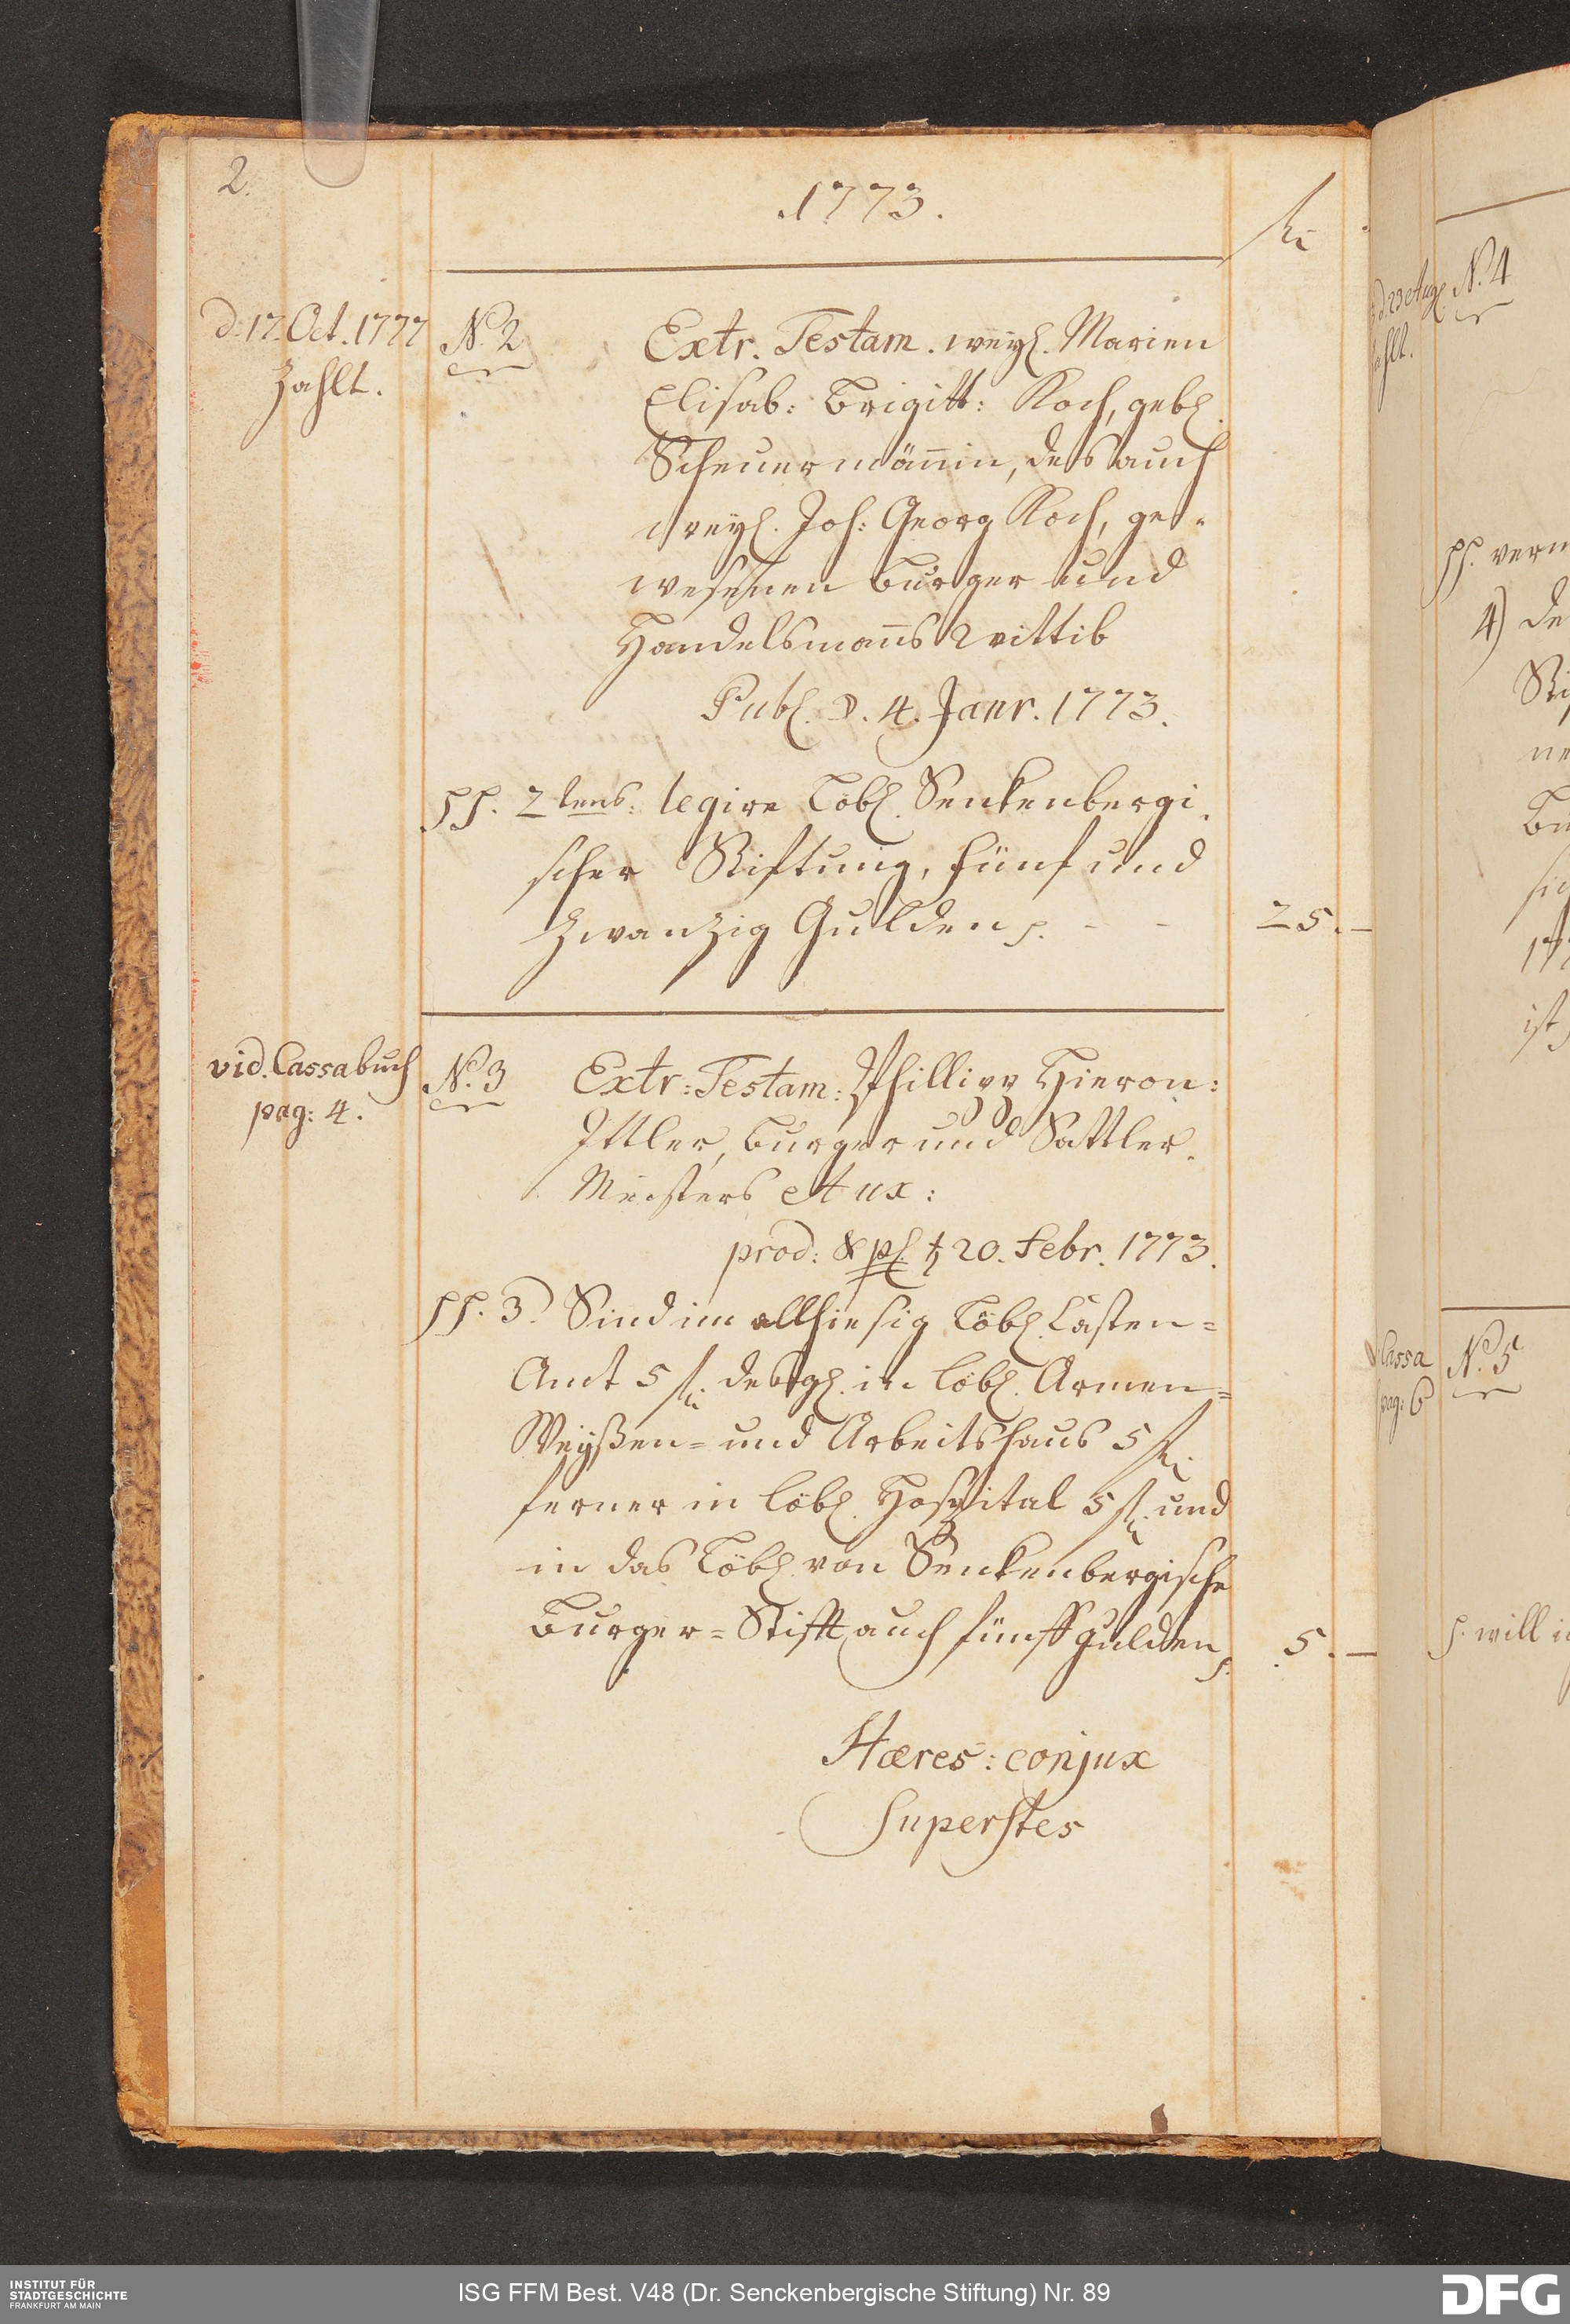 2.
1773.
fl
d. 17. Oct. 1777
Zahlt.
N. 2
Extr. Testam. weyl. Marien
Elisab: Brigitt: Koch, gebl.
Scheuermän̄in, des auch
weyl. Joh: Georg Koch, ge-
wesenen burger und
Handelsman̄s Wittib
Publ. d. 4. Janr. 1773.
pp. 2tens: legire Löbl. Senkenbergi-
scher Stiftung, fünf und
Zwanzig Gulden p. - -
25. —
vid. Cassabuch
pag: 4.
N. 3
Extr: Testam: Phillipp Hieron:
Ittler, burger und Sattler-
Meisters et ux:
prod: & pl. ♄ 20. Febr. 1773.
pp. 3. Sind im allhiesig Löbl. Casten=
Amt 5 fl. desgl. in löbl. Armen=
Weyßen= und Arbeitshaus 5 fl.
ferner in löbl. Hospital 5 fl. und
in das Löbl. von Senkenbergische
Burger=Stifft auch fünff Gulden
p.
5. —
Hæres: conjux
Superstes
d. 23 Aug.
N. 4
pp. verm
4) de
ne
sic
177
ist
Cassa
pag: 6
N. 5
p. will i
INSTITUT FÜR
STADTGESCHICHTE
FRANKFURT AM MAIN
ISG FFM Best. V48 (Dr. Senckenbergische Stiftung) Nr. 89
DFG